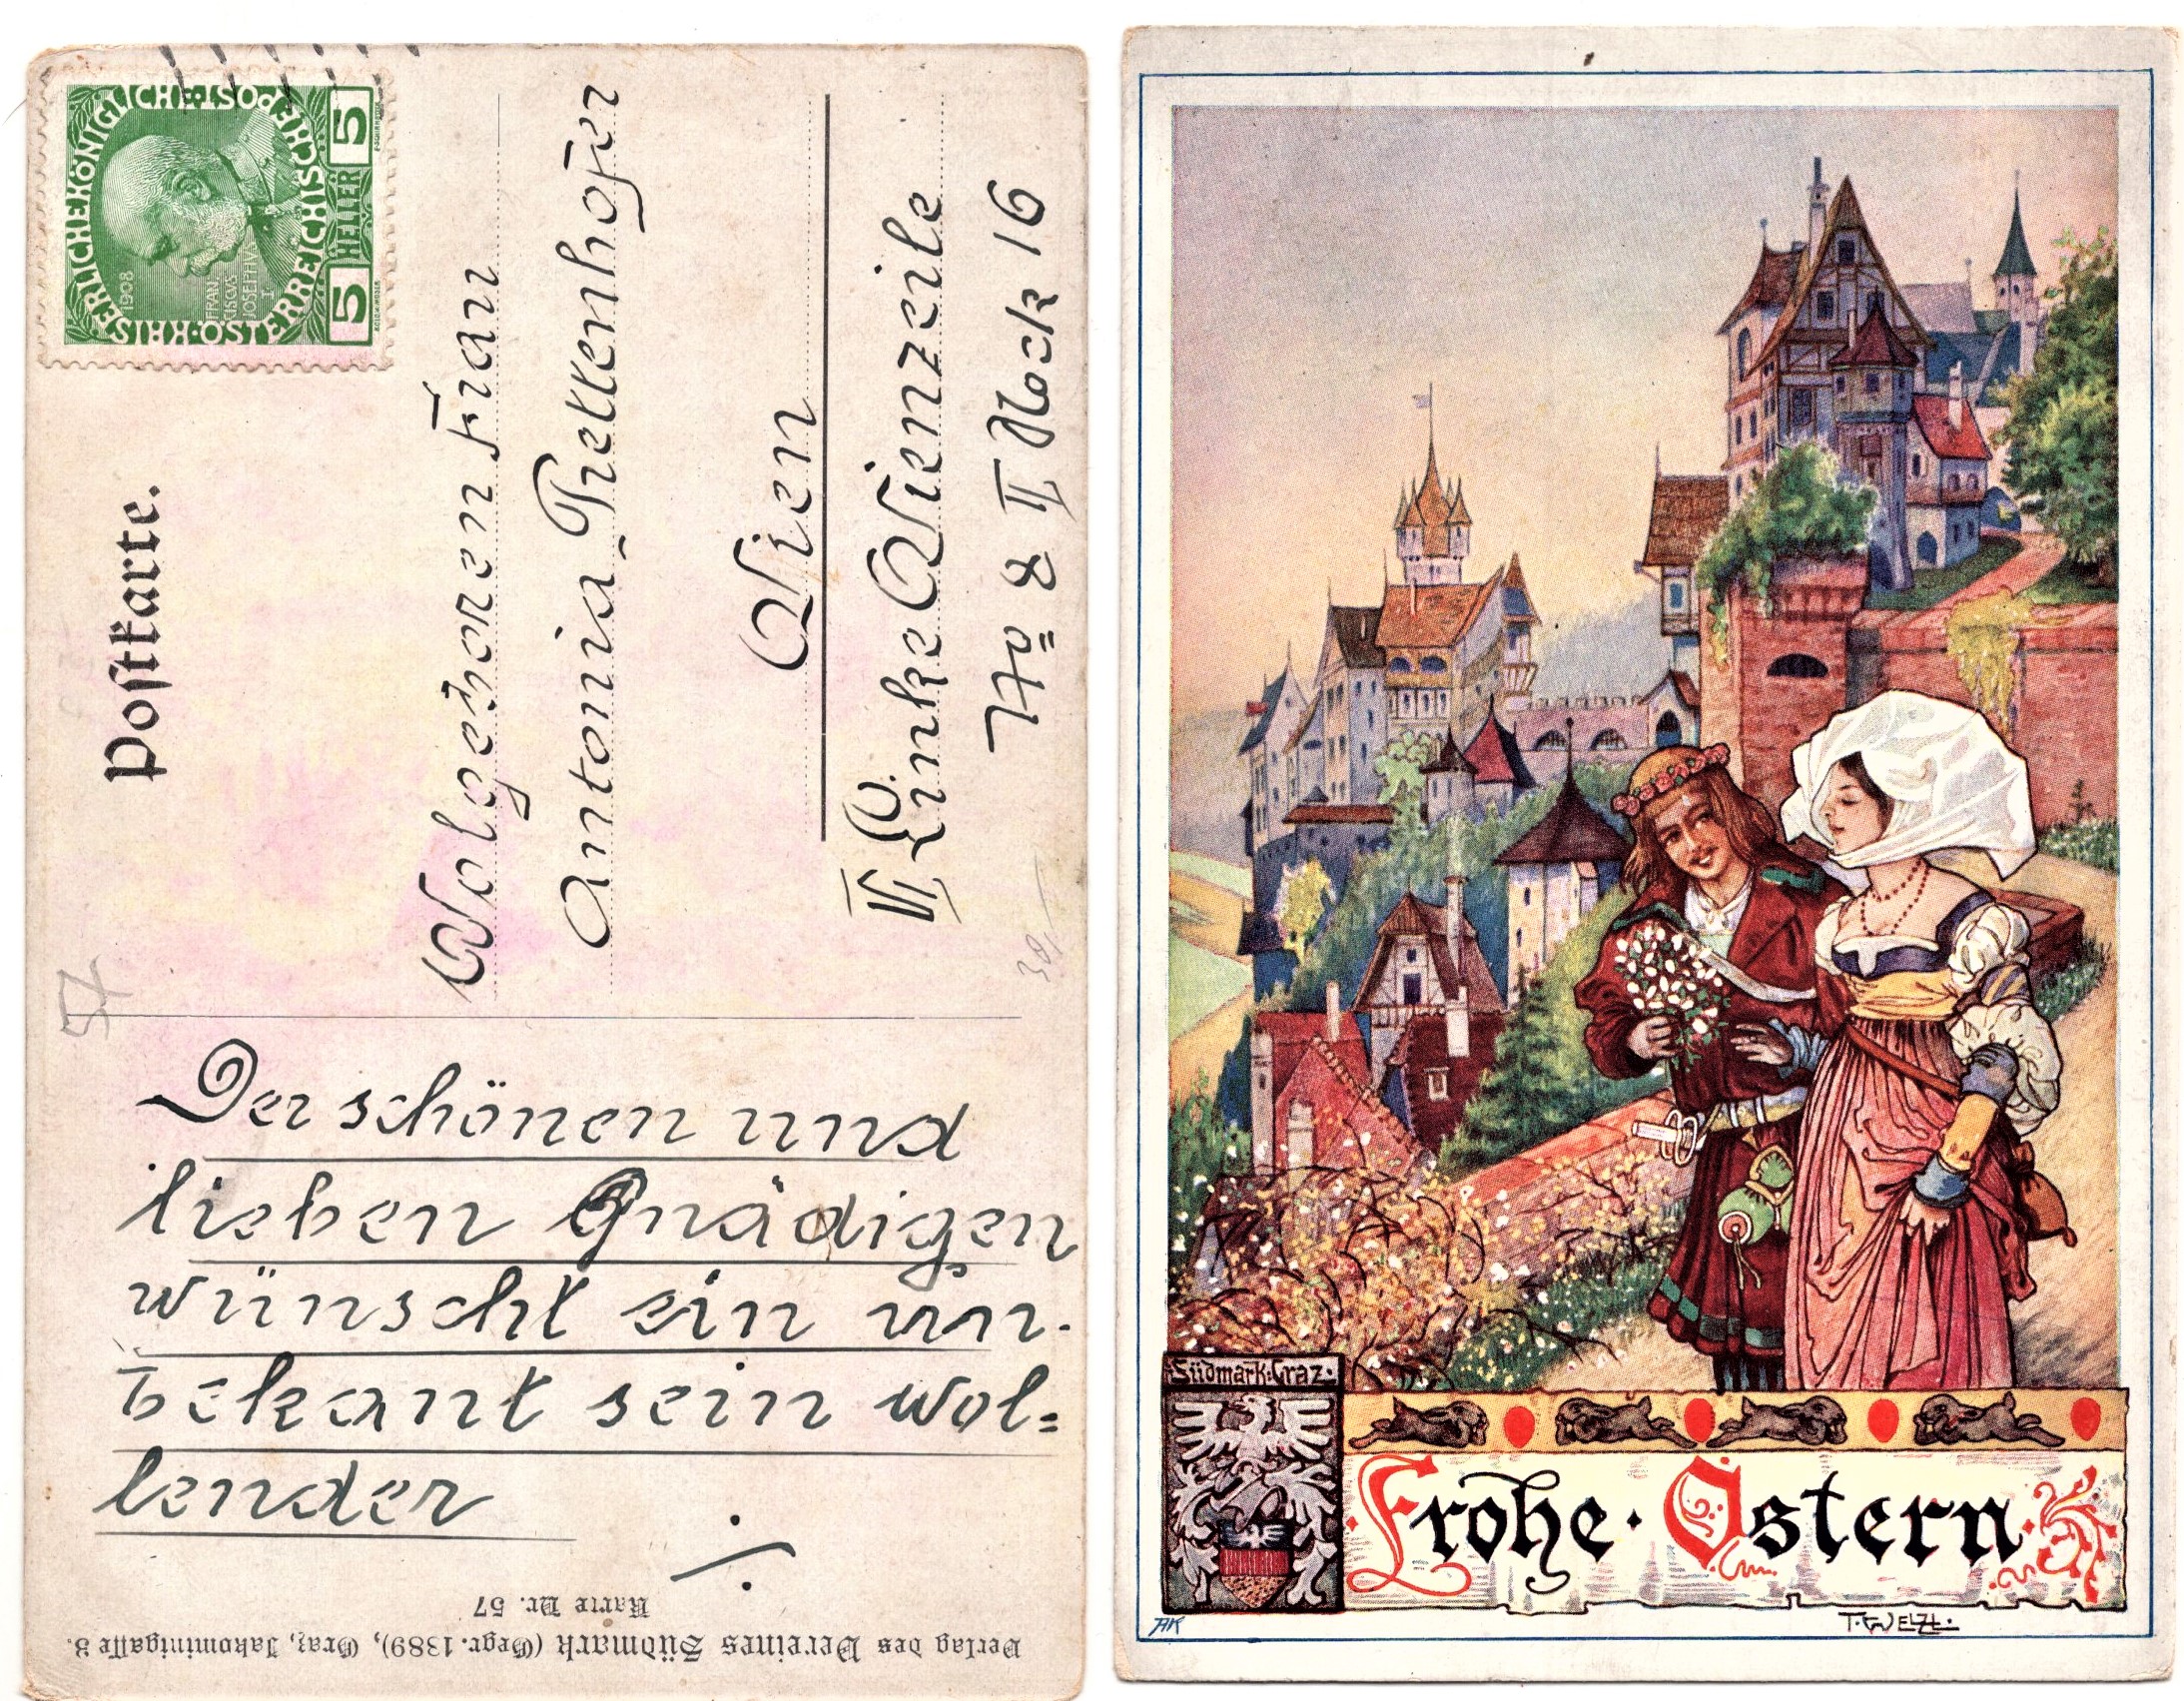 Postkarte.
KAISERLICHEKÖNIGLICHE·POST
ÖSTERREICHISCHE
1908
FRAN
CISCVS
IOSEPHVS
I·
5 HELLER 5
Wolgeborenen Frau
Antonia Prellenhofer
Wien
VI Linke Wienzeile
No 8 II Stock 16
Der schönen und
lieben Gnädigen
wünscht ein un-
bekant sein wol=
lender
Karte Nr. 57
Verlag des Vereines Südmark (Gegr. 1889), Graz, Jakominigasse 3.
·Südmark·Graz·
Frohe · Ostern
AK
T·WELZL·